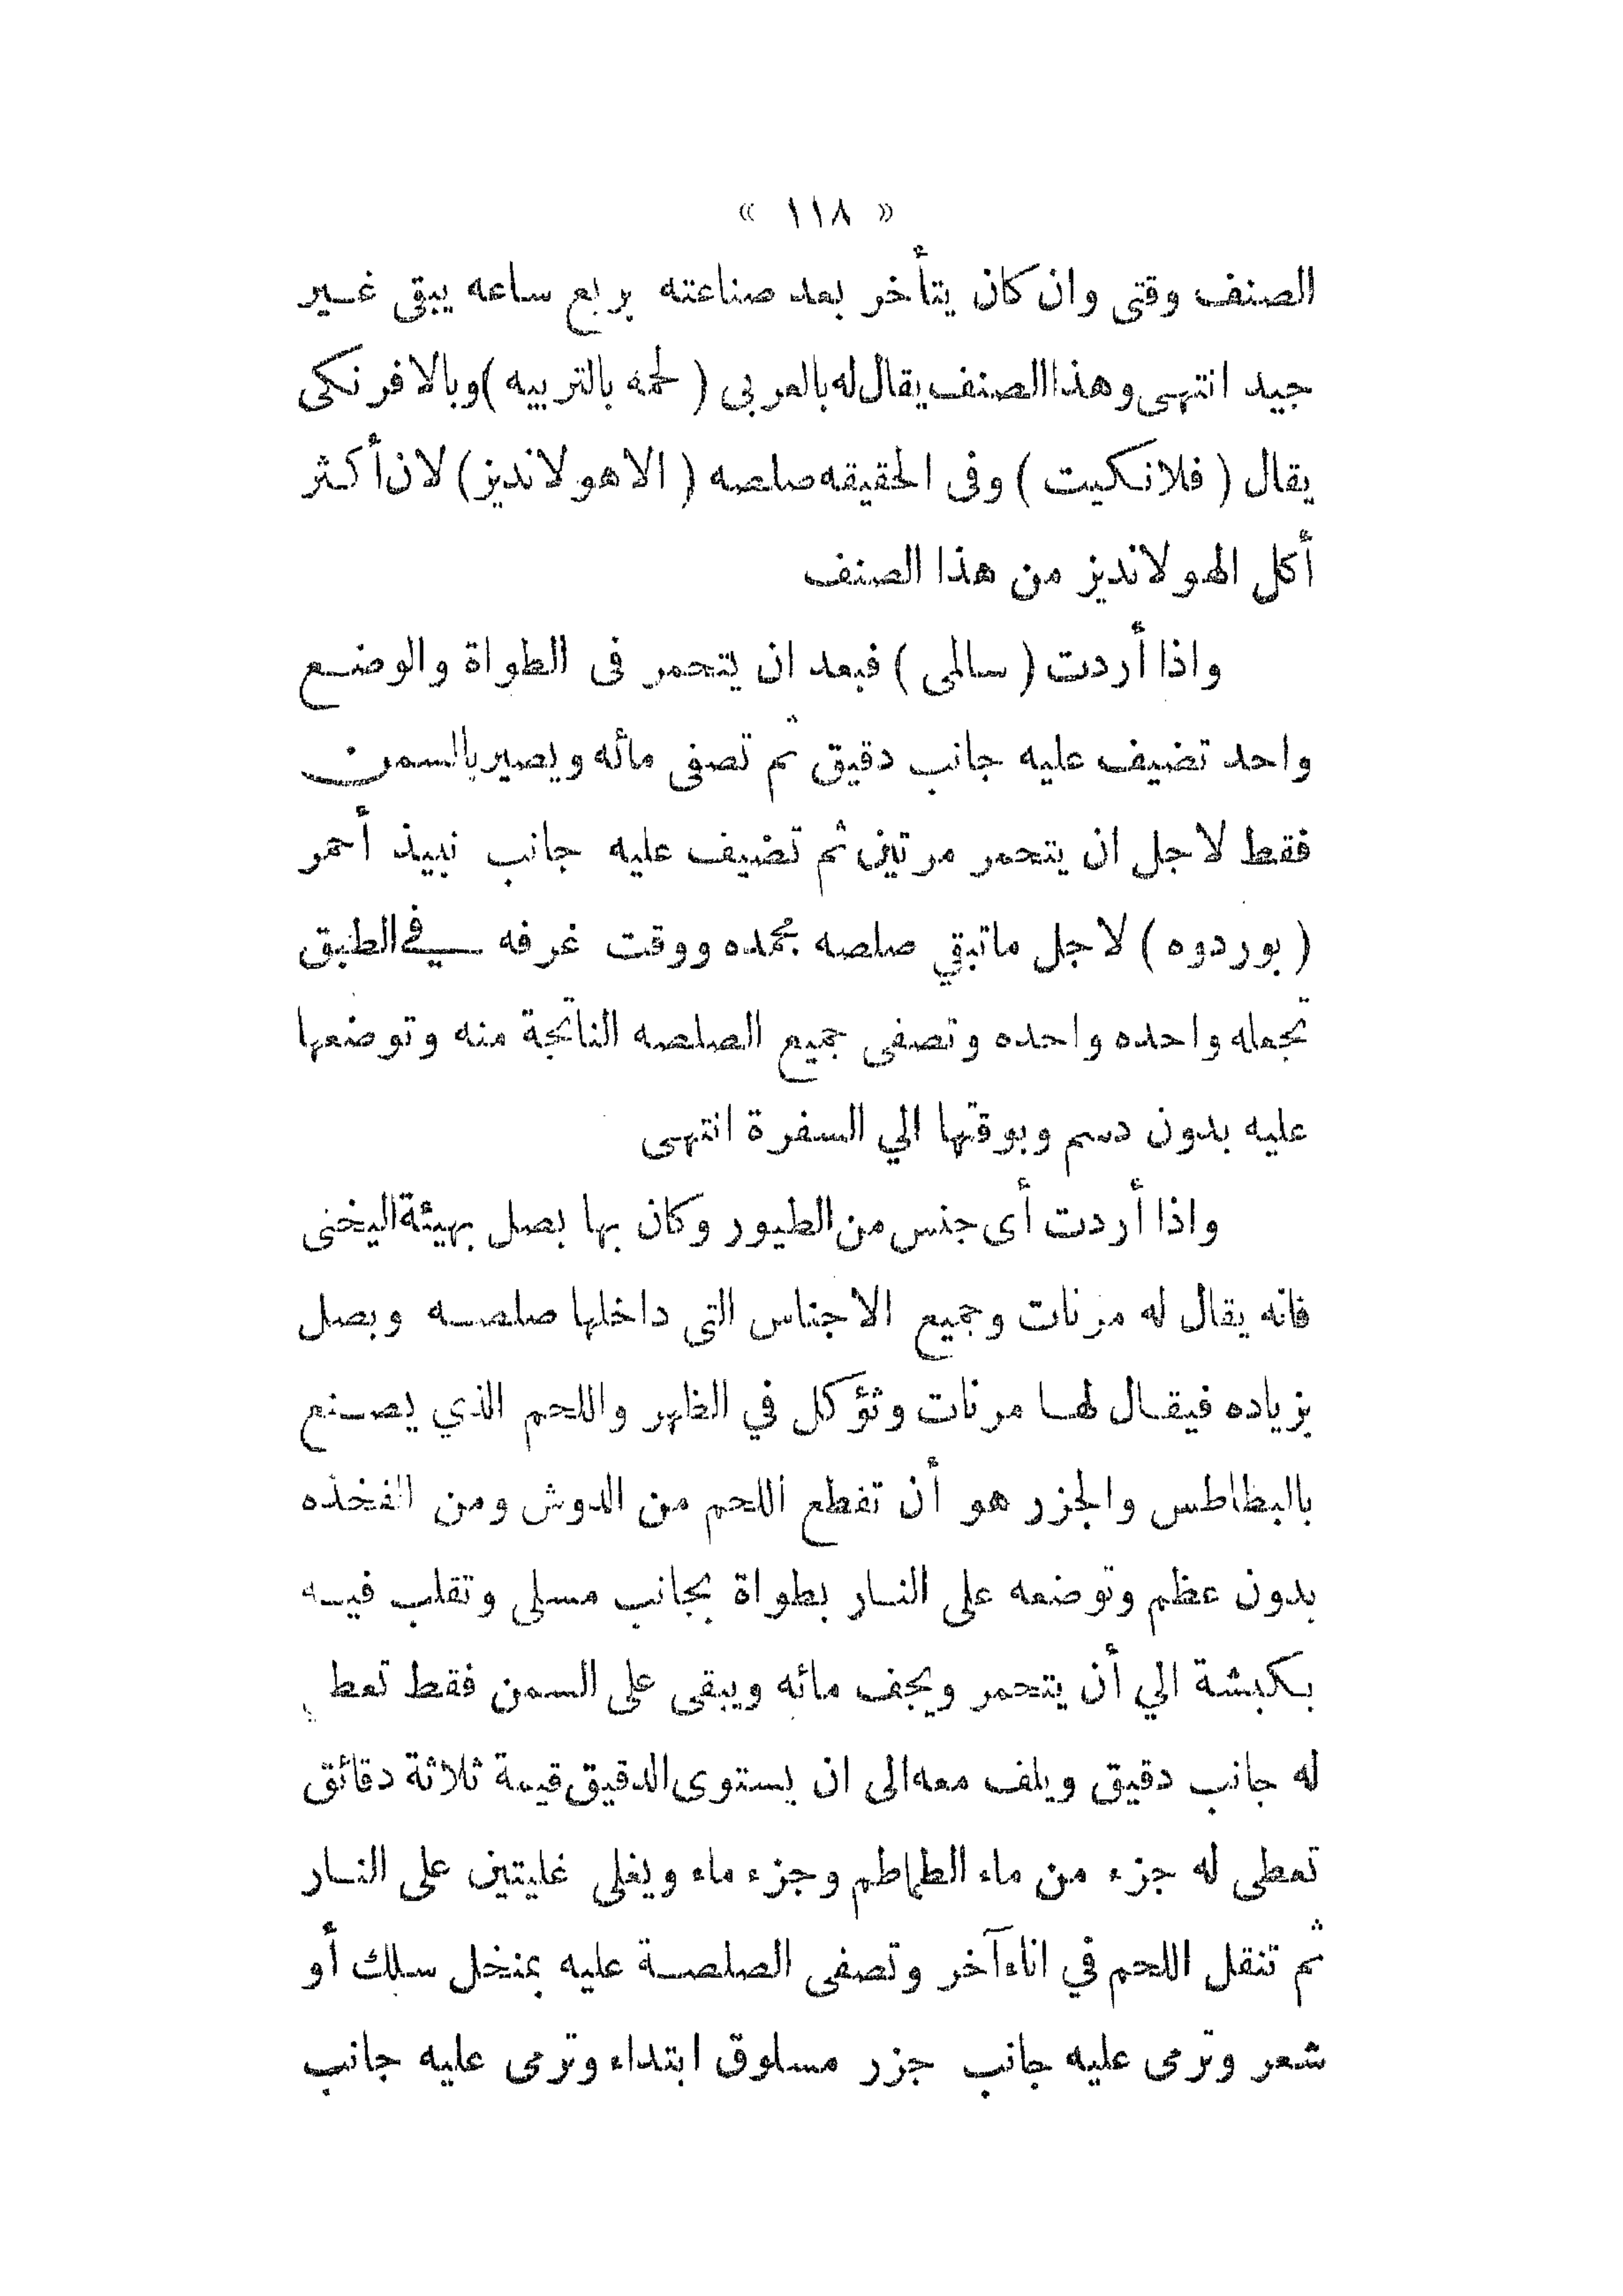 « ١١٨ »
الصنف وقتى وان كان يتأخر بعد صناعته بربع ساعه يبقى غير
جيد انتهى وهذا الصنف يقال له بالعربى ( لحمه بالتربيه ) وبالافرنكى
يقال ( فلانكيت ) وفى الحقيقه صلصه ( الاهولانديز ) لان أكثر
أكل الهولانديز من هذا الصنف
واذا أردت ( سالمى ) فبعد ان يتحمر فى الطواة والوضع
واحد تضيف عليه جانب دقيق ثم تصفى مائه ويصير بالسمن
فقط لاجل ان يتحمر مرتين ثم تضيف عليه جانب نبيذ أحمر
( بوردوه ) لاجل ماتبقي صلصه مجمده ووقت غرفه في الطبق
تجعله واحده واحده وتصفى جميع الصلصه الناتجة منه وتوضعها
عليه بدون دسم وبوقتها الي السفرة انتهى
واذا أردت أى جنس من الطيور وكان بها بصل بهيئة اليخنى
فانه يقال له مرنات وجميع الاجناس التى داخلها صلصه وبصل
بزياده فيقال لها مرنات وتؤكل في الظهر واللحم الذي يصنع
بالبطاطس والجزر هو أن تقطع اللحم من الدوش ومن الفخذه
بدون عظم وتوضعه على النار بطواة بجانب مسلى وتقلب فيه
بكبشة الي أن يتحمر ويجف مائه ويبقى على السمن فقط تعط
له جانب دقيق ويلف معه الى ان يستوى الدقيق قيمة ثلاثة دقائق
تعطى له جزء من ماء الطماطم وجزء ماء ويغلى غليتين على النار
ثم تنقل اللحم في اناء آخر وتصفى الصلصة عليه بمنخل سلك أو
شعر وترمى عليه جانب جزر مسلوق ابتداء وترمى عليه جانب